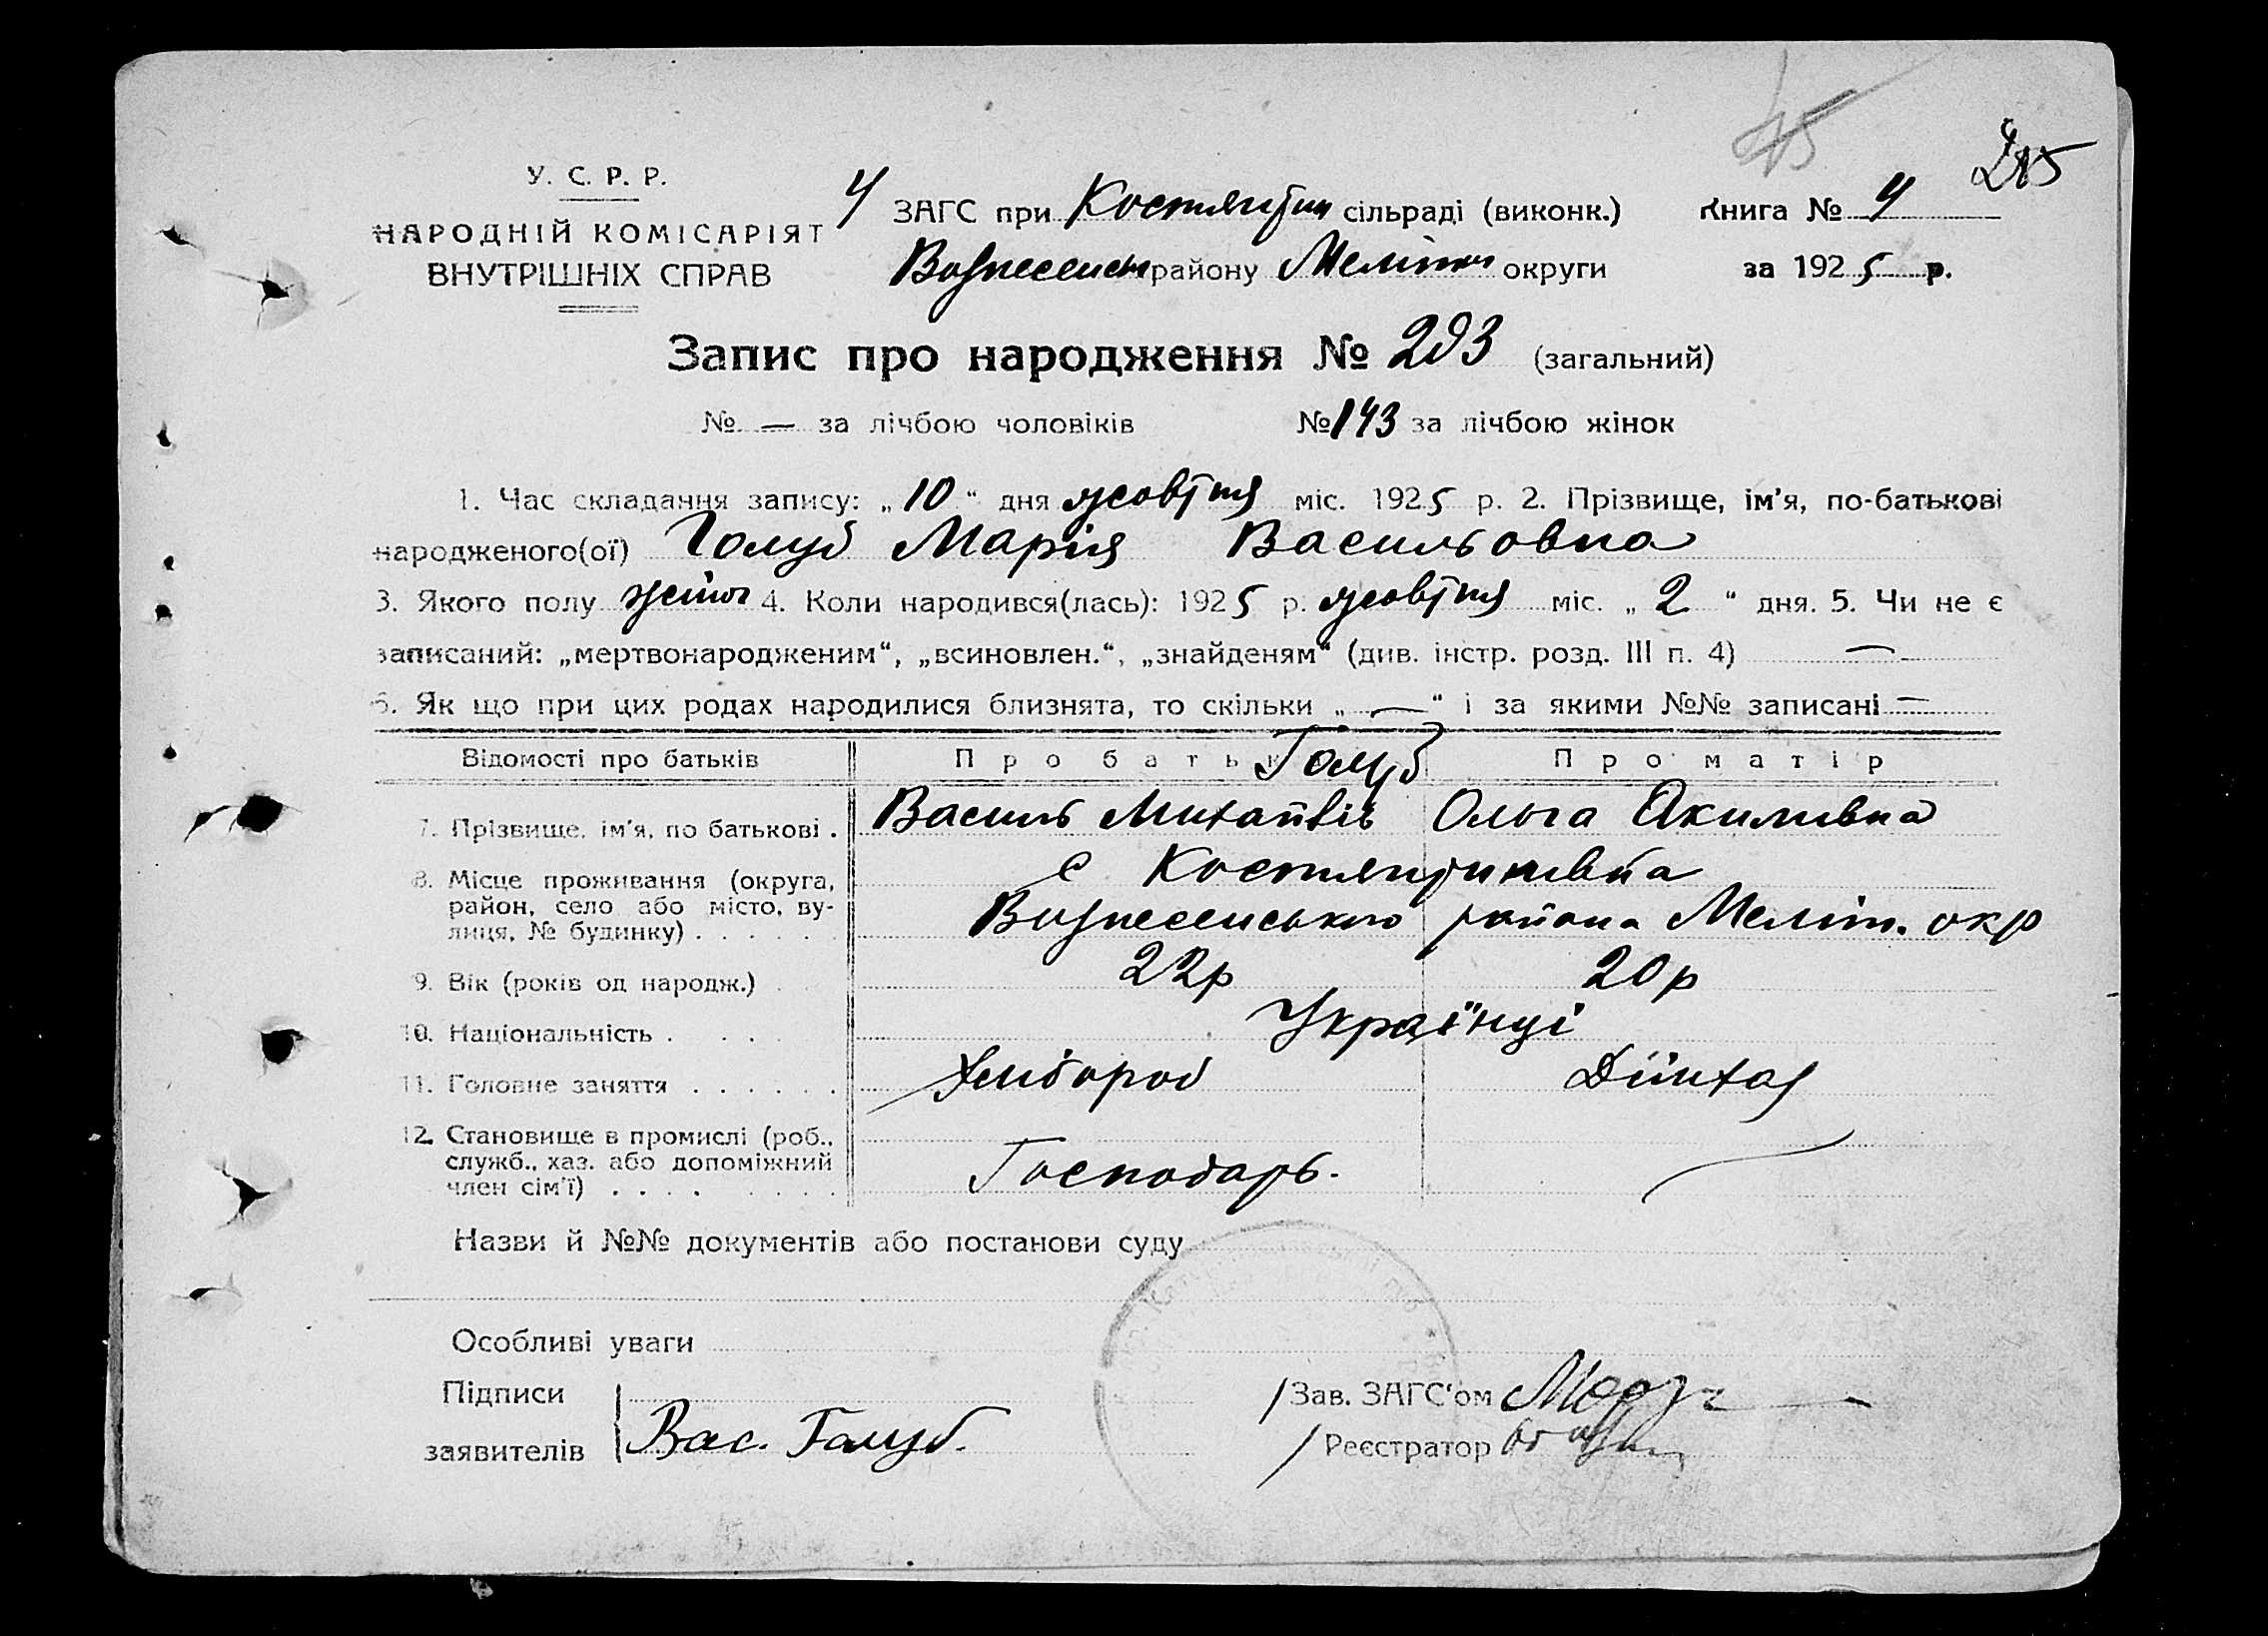 45
245
У. С. Р. Р.
НАРОДНІЙ КОМІСАРІЯТ
ВНУТРІШНІХ СПРАВ
У ЗАГС при Костянтин сільраді (виконк.) Книга № 4
Вознесенськ району Меліт округи за 1925 р.
Запис про народження № 293 (загальний)
№ — за лічбою чоловіків № 143 за лічбою жінок
1. Час складання запису: „10“ дня жовтня міс. 1925 р. 2. Прізвище, ім’я, по-батькові
народженого(ої) Голуб Марія Васильовна
3. Якого полу жіноч 4. Коли народився(лась): 1925 р. жовтня міс. „2“ дня. 5. Чи не є
записаний: „мертвонародженим“, „всиновлен.“, „знайденям“ (див. інстр. розд. III п. 4) —
6. Як що при цих родах народилися близнята, то скільки „—“ і за якими №№ записані —
Відомості про батьків Про батьк Про матір
Голуб
7. Прізвище, ім’я, по батькові . Василь Михайлів Ольга Якимивна
8. Місце проживання (округа, с Костянтинівка
район, село або місто, ву- Вознесенського района Меліт. окр
лиця, № будинку) . . . . . .
9. Вік (років од народж.) . 22р 20р
10. Національність . . . . Українці
11. Головне заняття . . . . . . Хлібороб
12. Становище в промислі (роб.,
служб., хаз. або допоміжний Господарь.
член сім’ї) . . . . . . . .
Назви й №№ документів або постанови суду
Особливі уваги
Підписи Зав. ЗАГС‘ом
заявителів Вас. Голуб. Реєстратор